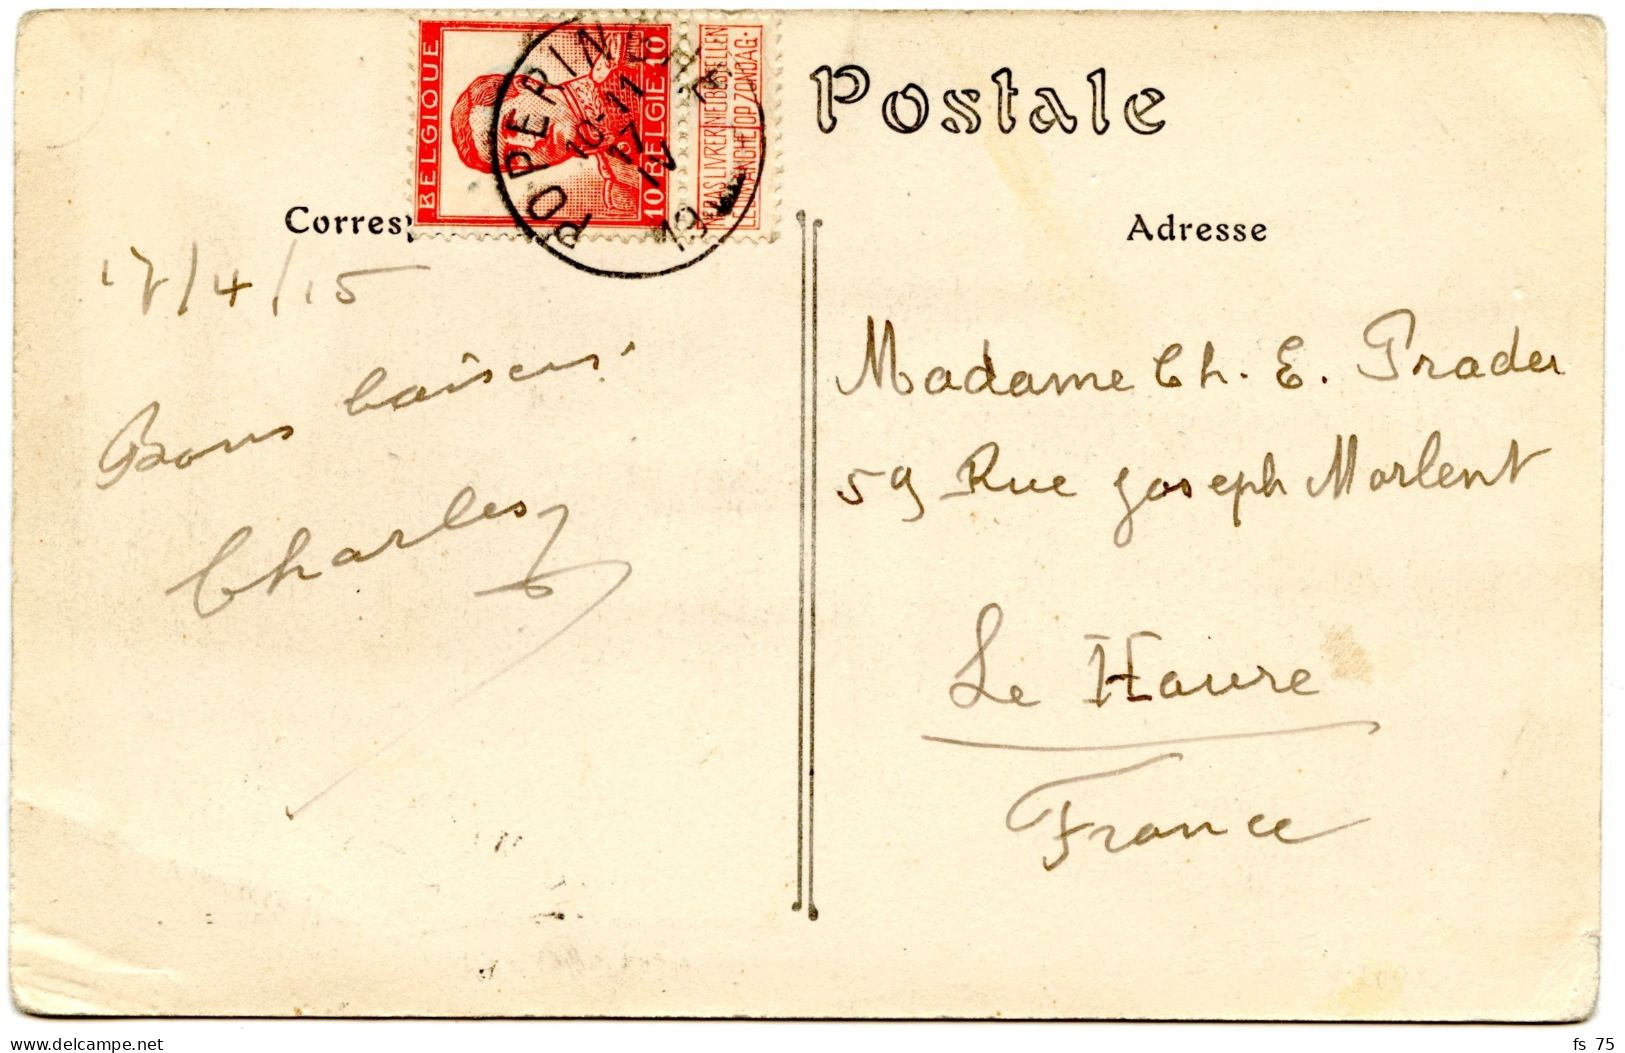 Postale
BELGIQUE
10 BELGIE 10
NE PAS LIVRER NIET BESTELLEN
LE DIMANCHE OP ZONDAG.
POPERIN
10-11
17
IV
19
Corresp
Adresse
17/4/15
Bons baisers.
Charles
Madame Ch. E. Prader
59 Rue Joseph Morlent
Le Havre
France
delcampe.net
fs 75